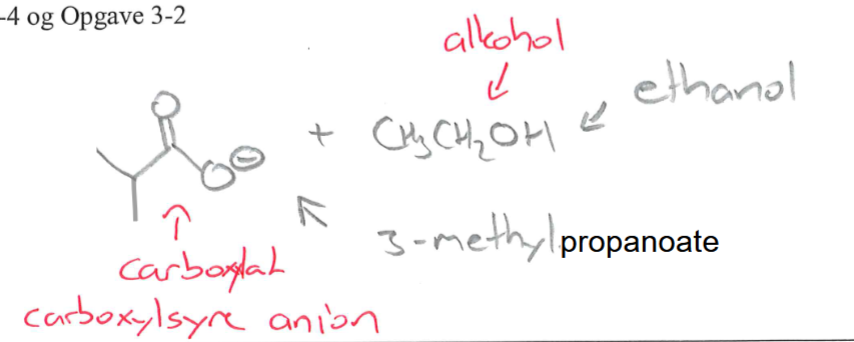 -4 og Opgave 3-2
alkohol
ethanol
O
+ CH3CH2OH
O⊖
3-methylpropanoate
carboxylat
carboxylsyre anion